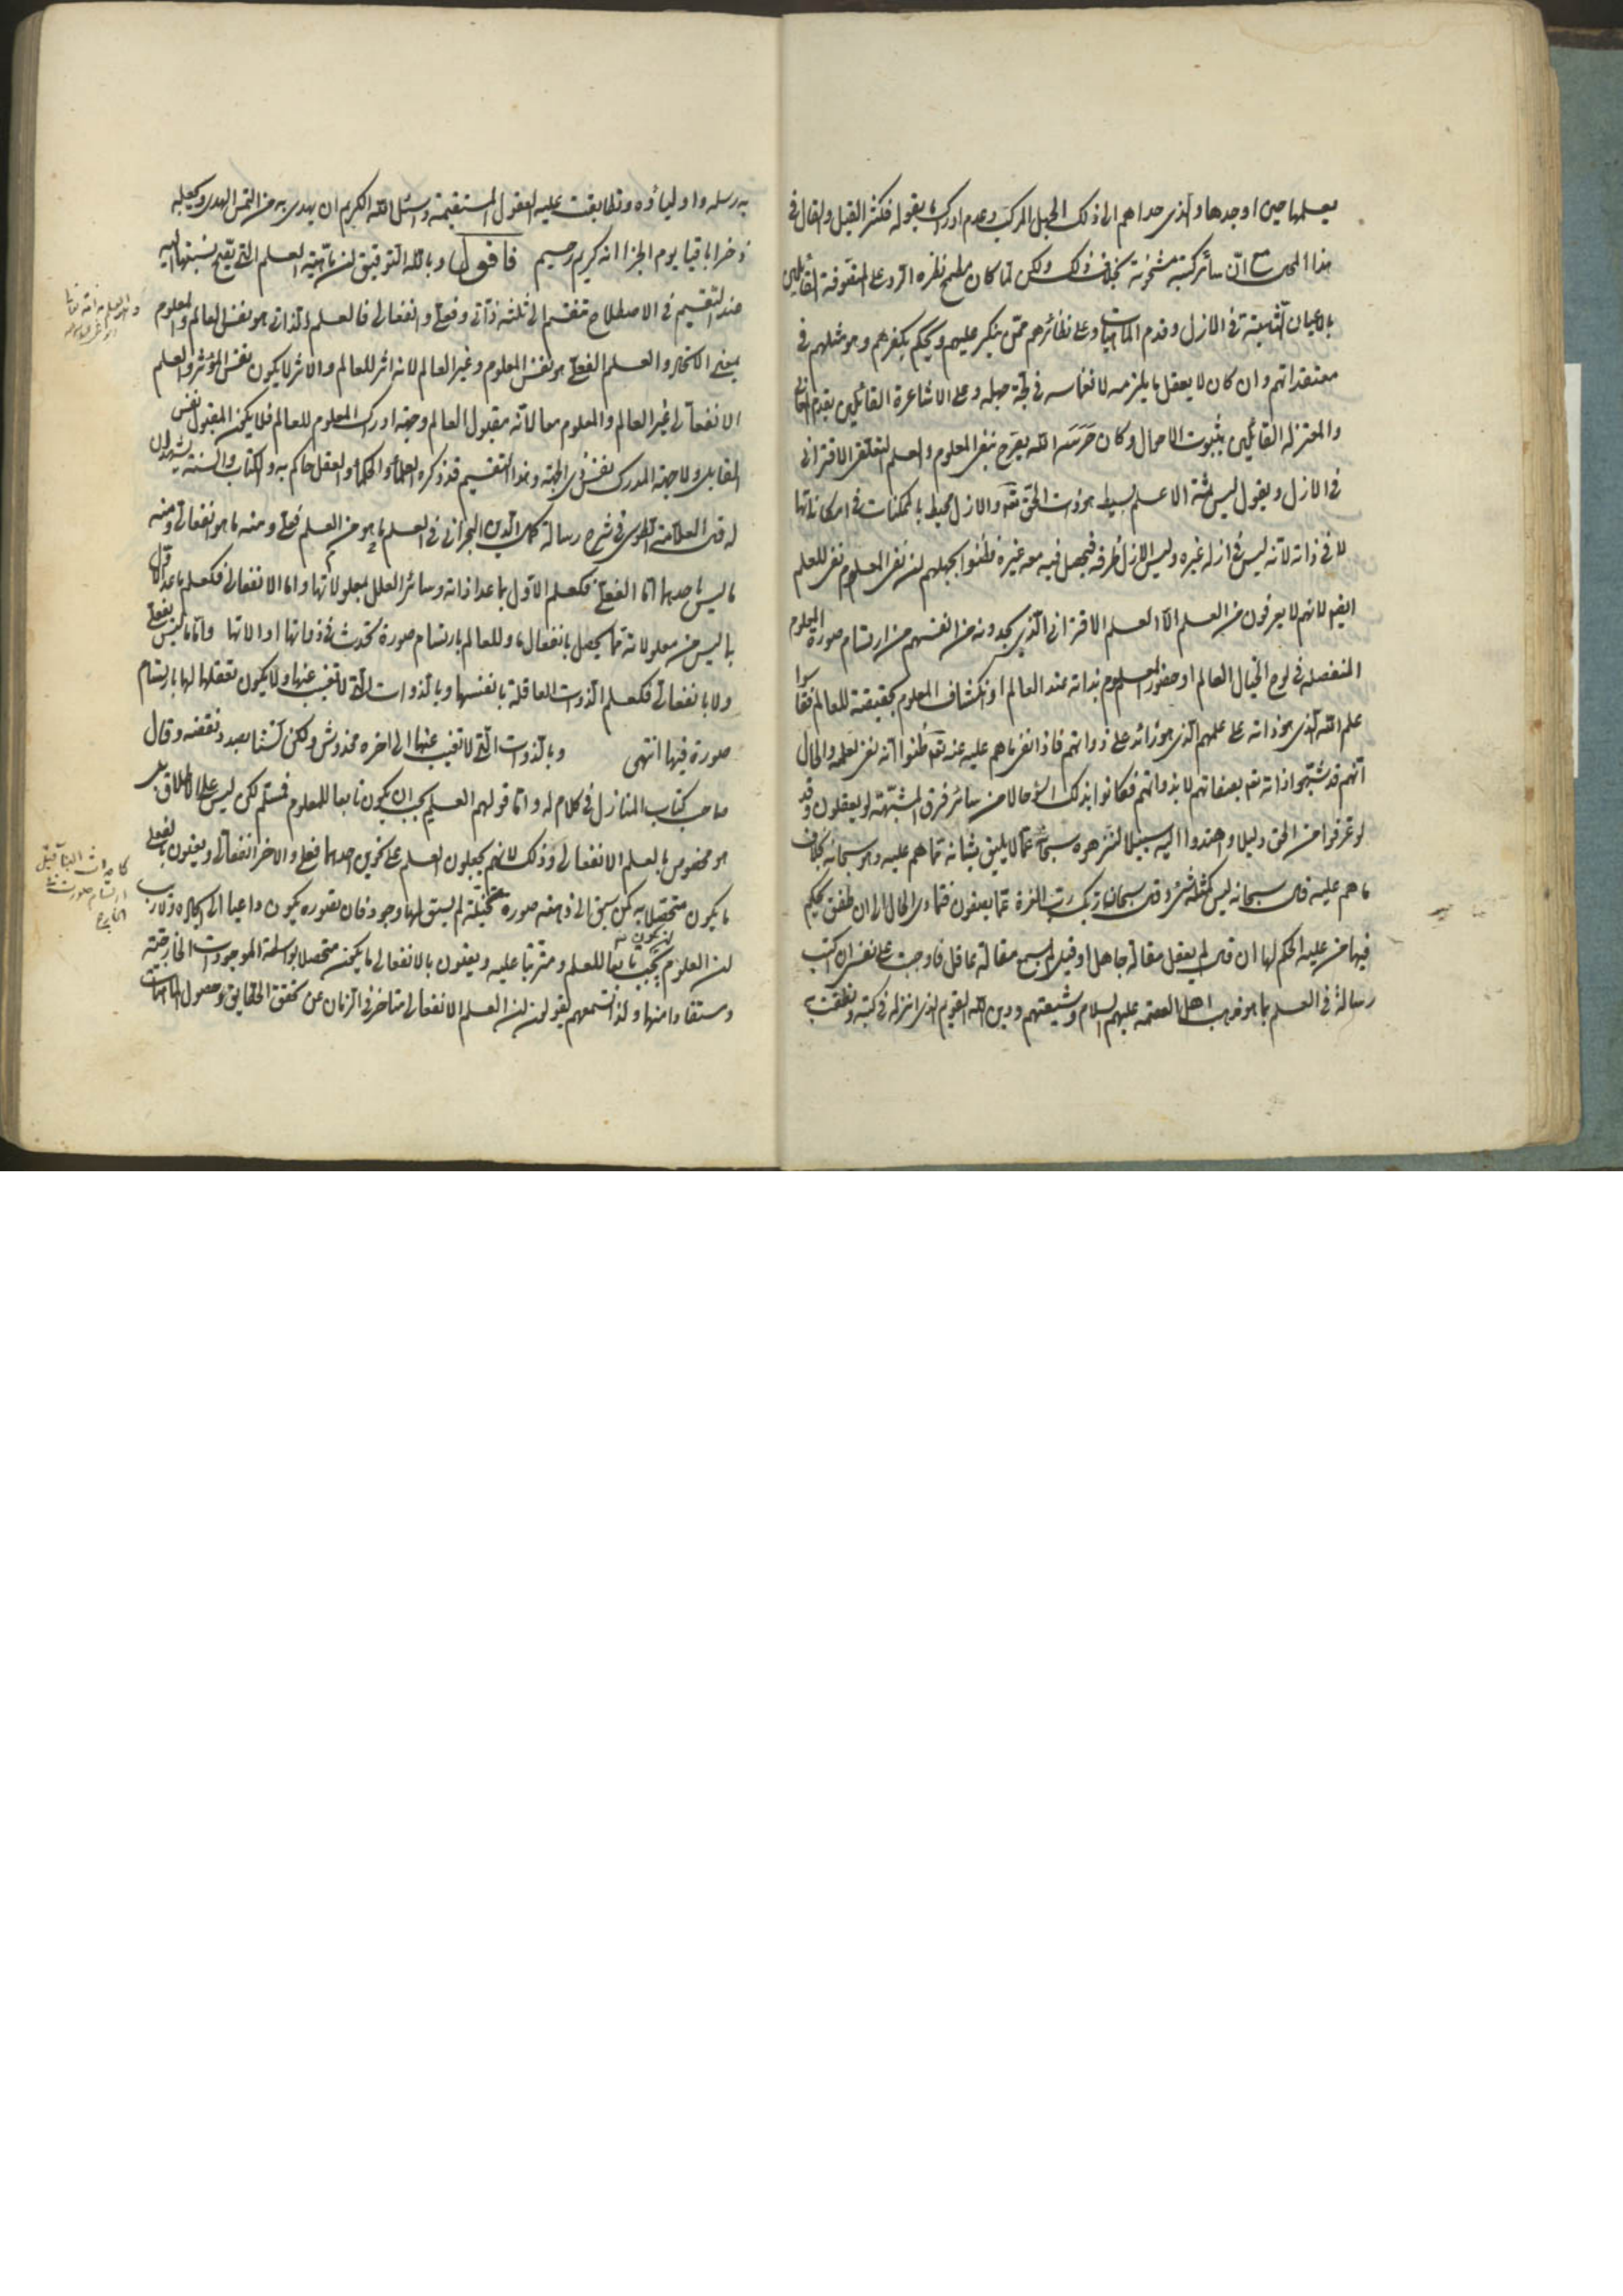 يعلمها حين اوجدها والذى حداهم الى ذلك الجهل المركب وعدم ادراك ما يقوله فكثر القيل والقال فى
هذا المعنى مع ان سائر كتبه مشحونة بخلاف ذلك ولكن لما كان مطمح نظره الرد على المتصوفة القائلين
بالاعيان الثابتة فى الازل وقدم الماهيات وعلى نظائرهم ممن ينكر عليهم ويحكم بكفرهم وهو مثلهم فى
معتقداتهم وان كان لا يعقل ما يلزمه لانغماسه فى لجة جهله وعلى الاشاعرة القائلين بقدم المعانى
والمعتزله القائلين بثبوت الاحوال وكان حرسه الله يصرح بنفى المعلوم والعلم المتعلق الاقترانى
فى الازل ويقول ليس ثمة الا علم بسيط هو ذات الحق تعه والازل محيط بالممكنات فى امكاناتها
لا فى ذاته لانه ليس فى ازله غيره وليس الازل ظرفه فيحصل فيه معه غيره فظنوا بجهلهم ان نفى المعلوم نفى للعلم
ايضو لانهم لا يعرفون من العلم الا العلم الاقترانى الذى يجدونه من انفسهم من ارتسام صورة المعلوم
المنفصله فى لوح الخيال العالم او حضور المعلوم بذاته عند العالم او انكشاف المعلوم بحقيقته للعالم فقاسوا
علم الله الذى هو ذاته على علمهم الذى هو زائد على ذواتهم فاذا نفى ما هم عليه عنه تعه ظنوا انه نفى لعلمه والحال
انهم قد شبهوا ذاته تعه بصفاتهم لا بذواتهم فكانوا بذلك اسوء حالا من سائر فرق المشبهة لو يعقلون وقد
لو عرفوا من الحق دليلا واهتدوا اليه سبيلا لنزهوه سبحانه عما لا يليق بشانه مما هم عليه وهو سبحانه بخلاف
ما هم عليه قال سبحانه ليس كمثله شئ وقال سبحان ربك رب العزة عما يصفون فتمادى الحال الى ان طفق يحكم
فيها من عليه الحكم لها ان قال لم يعقل مقالة جاهل او قيل لم يسمع مقالة عاقل فاوجبت على نفسى ان اكتب
رسالة فى العلم بما هو مذهب اهل العصمه عليهم السلام وشيعتهم ودين الله القويم الذى انزله فى كتبه ونطقت
به رسله واوليآؤه وتطابقت عليه العقول المستقيمة واسئل الله الكريم ان يهدى به من التمس الهدى ويجعله
ذخرا باقيا يوم الجزا انه كريم رحيم فاقول وبالله التوفيق ان ماهية العلم التى يقع نسبتها اليه
عند التقسيم فى الاصطلاح تنقسم الى ثلثة ذآتى وفعلى وانفعالى فالعلم الذاتى هو نفس العالم والمعلوم
بمعنى الاتحاد والعلم الفعلى هو نفس المعلوم وغير العالم لانه اثر للعالم والاثر لا يكون نفس المؤثر والعلم
الانفعالى غير العالم والمعلوم معا لانه مقبول العالم وجهة ادراك المعلوم للعالم فلا يكون المقبول نفس
القابل ولا جهة المدرك نفس ذى الجهة وهذا التقسيم قد ذكره العلمآء والحكمآء والعقل حاكم به والكتاب والسنة يشهدان
له قال العلامة الطوسى فى شرح رسالة كمال الدين البحرانى فى العلم ما هو من العلم فعلى ومنه ما هو انفعالى ومنه
ما ليس باحدهما اما الفعلى فكعلم الاول بما عدا ذاته وسائر العلل بمعلولاتها واما الانفعالى فكعلم ما عدا الاول
بما ليس من معلولاته مما يحصل بانفعال ما وللعالم بارتسام صورة تحدث فى ذواتها او الاتها واما ما ليس بفعلى
ولا بانفعالى فكعلم الذوات العاقلة بانفسها وبالذوات التى لا تغيب عنها ولا يكون تعقلها لها بارتسام
صورة فيها انتهى وبالذوات التى لا تغيب عنها الى اخره مخدوش ولكن لسنا بصدد نقضه وقال
صاحب كتاب المنازل فى كلام له واما قولهم العلم يجب ان يكون تابعا للمعلوم فمسلم لكن ليس على الاطلاق بل
هو مخصوص بالعلم الانفعالى وذلك لانهم يجعلون العلم على نحوين احدهما فعلى والاخر انفعالى ويعنون بالفعلى
ما يكون متحصلا به كمن سبق الى ذهنه صورة متخيلة لم يسبق لها وجود فان تصوره يكون داعيا الى ايجاده ولا ريب
ان المعلوم يجب ان يكون تابعا للعلم ومترتبا عليه ويعنون بالانفعالى ما يكون متحصلا بواسطة الموجودات الخارجية
ومستفادا منها ولذا تسمعهم يقولون ان العلم الانفعالى متاخر فى الزمان عن تحقق الحقايق وحصول الماهيات